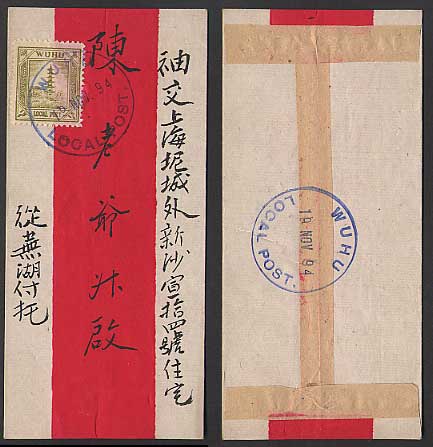 袖交上海坭城外新沙宣拾四號住宅
陳老爺升啟
從蕪湖付托
WUHU
LOCAL POST
NOV. 94
LOCAL POST.
WUHU
19 NOV 94
LOCAL POST.